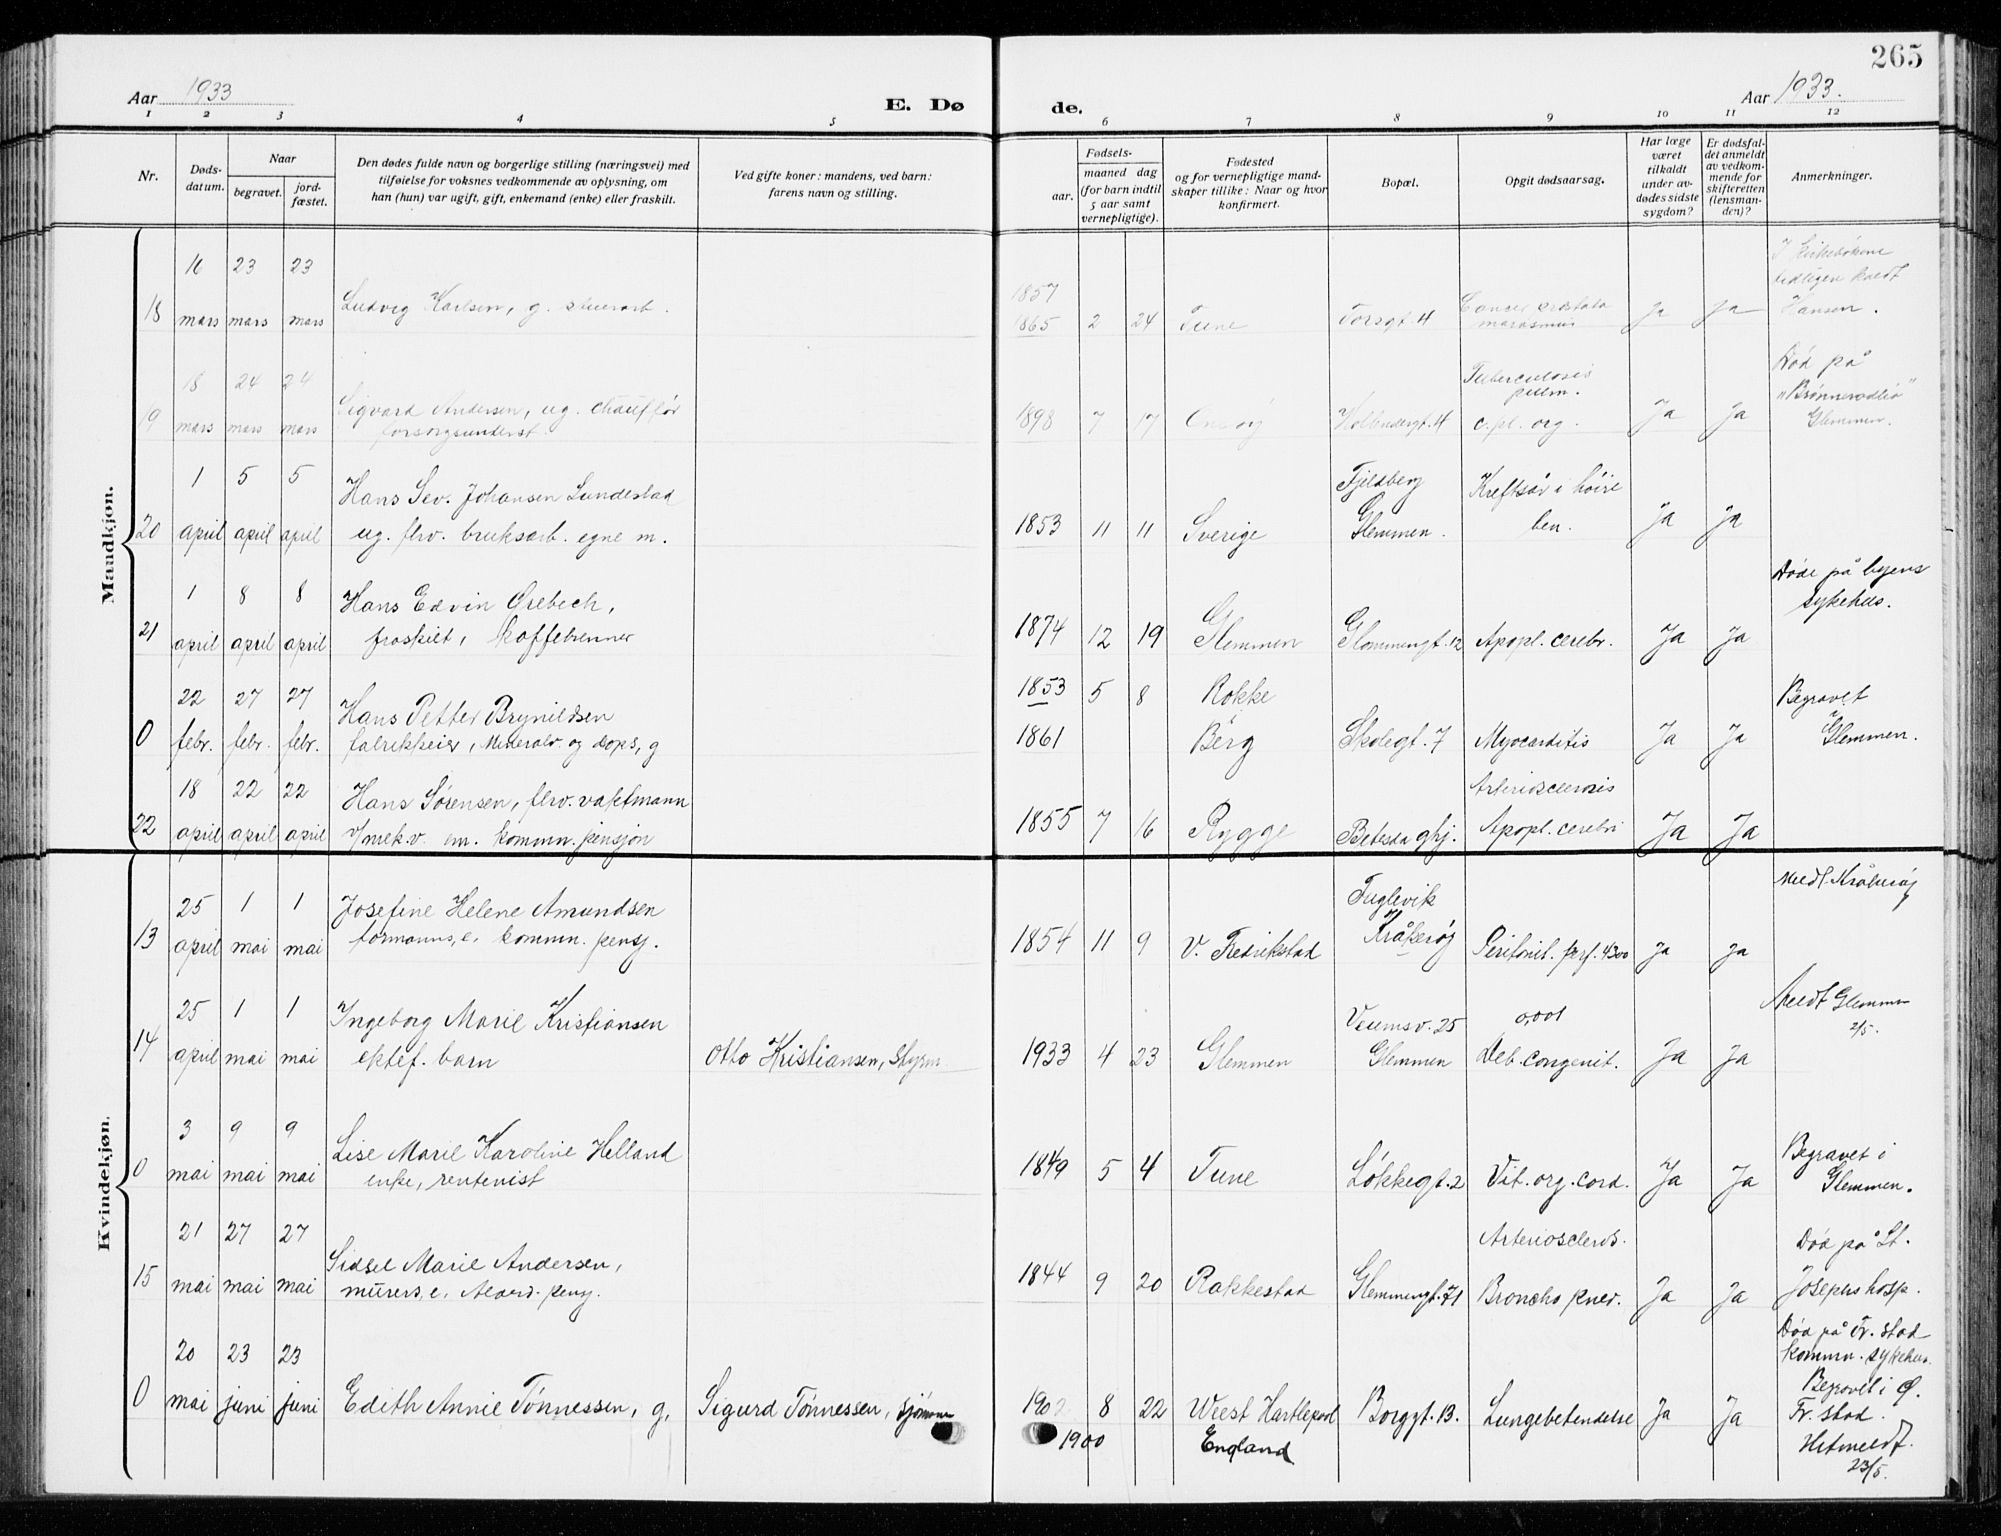 265
Aar 1933
E. Døde.
Aar 1933.
1 2 3 4 5 6 7 8 9 10 11 12
Nr.
Døds-
datum.
Naar
begravet.
jord-
fæstet.
Den dødes fulde navn og borgerlige stilling (næringsvei) med
tilføielse for voksnes vedkommende av oplysning, om
han (hun) var ugift, gift, enkemand (enke) eller fraskilt.
Ved gifte koner: mandens, ved barn:
farens navn og stilling.
Fødsels-
aar.
maaned dag
(for barn indtil
5 aar samt
vernepligtige).
Fødested
og for vernepligtige mand-
skaper tillike: Naar og hvor
konfirmert.
Bopæl.
Opgit dødsaarsag.
Har læge
været
tilkaldt
under av-
dødes sidste
sygdom?
Er dødsfal-
det anmeldt
av vedkom-
mende for
skifteretten
(lensman-
den)?
Anmerkninger.
Mandkjøn.
16 23 23
18 mars mars mars
Ludvig Karlsen, g.
1857
1865 2 24 Tune Torsgt. 4
Cancer prostata
marasmus
Ja Ja
I kirkebøkene
tidligen kaldt
Hansen.
18 24 24
19 mars mars mars
Sigvard Andersen, ug. chauffør
forsorgsunderst.
1898 7 17 Onsøy Hollendergt. 4
Tuberculosis
pulm.
c. pl. org.
Ja Ja
Død på
"Brønnerødliø"
Glemmen.
1 5 5
20 april april april
Hans Sev. Johansen Lundestad
ug. flrv. bruksarb. egne m.
1853 11 11 Sverige
Fjeldberg
Glemmen.
Kreftsår i høire
ben.
Ja Ja
1 8 8
21 april april april
Hans Edvin Orebech,
fraskilt, kaffebrenner
1874 12 19 Glemmen Glommengt. 12 Apopl. cerebr. Ja Ja
Døde på byens
sykehus.
22 27 27
0 febr. febr. febr.
Hans Petter Brynildsen
fabrikkeier, Mineralv. og sops, g
1853 5 8 Rokke
1861 Berg Skolegt. 7 Myocarditis Ja Ja
Begravet
i Glemmen.
18 22 22
22 april april april
Hans Sørensen, flrv. vaktmann
v/mek.v. em. kommn. pensjon
1855 7 16 Rygge Betesda ghj.
Arteriosclerosis
Apopl. cerebri
Ja Ja
Kvindekjøn.
25 1 1
13 april mai mai
Josefine Helene Amundsen
formanns, e. kommn. pensj.
1854 11 9 V. Fredrikstad
Fuglevik
Kråkerøy
Peritonit. perf. 4300
Ja Ja
Meldt Kråkerøy
25 1 1
14 april mai mai
Ingeborg Marie Kristiansen
ektef. barn
Otto Kristiansen, Styrm
1933 4 23 Glemmen
Veumsv. 25
Glemmen
0,001
Deb. congenit.
Ja Ja
Meldt Glemmen
2/5.
3 9 9
0 mai mai mai
Lise Marie Karoline Helland
enke, rentenist
1849 5 4 Tune Løkkegt. 2 Vit. org. cord. Ja Ja
Begravet i
Glemmen.
21 27 27
15 mai mai mai
Sidsel Marie Andersen,
murers, e. Alderd. pensj.
1844 9 20 Rakkestad Glemmengt. 71
Arterioscleros.
Broncho pnev.
Ja Ja
Død på St.
Josephs hosp.
20 23 23
0 mai juni juni
Edith Annie Tønnessen, g,
Sigurd Tønnessen, sjømann
1902 8 22 West Hartlepool
1900 England
Borggt. 13. Lungebetendelse Ja Ja
Død på Fr. stad
kommn. sykehus.
Begravet i Ø.
Fr. stad.
Hitmeldt.
23/5.